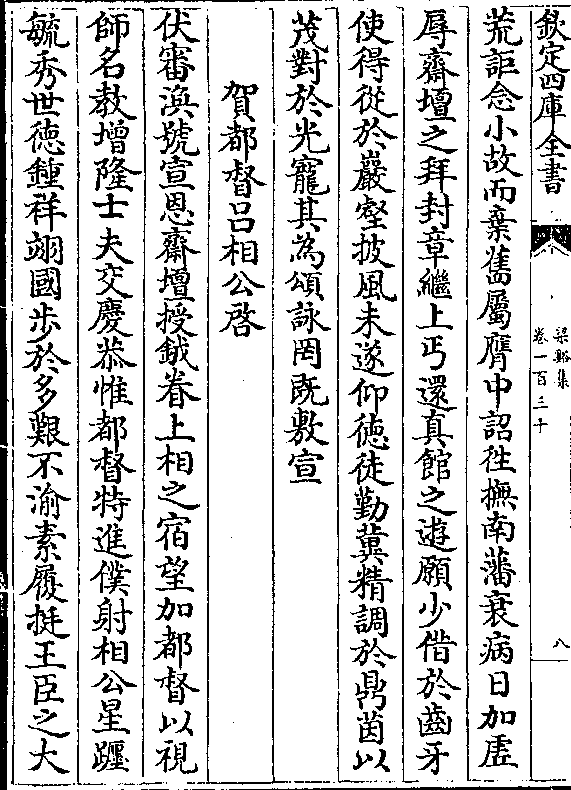 欽定四庫全書
梁谿集
卷一百三十
八
荒詎念小故而棄舊屬膺中詔徃撫南藩衰病日加虛
辱齋壇之拜封章繼上丐還真館之逰願少借於齒牙
使得從於巖壑披風未遂仰徳徒勤冀精調於鼎茵以
茂對於光寵其為頌詠罔既敷宣
賀都督吕相公啓
伏審渙號宣恩齋壇授鉞眷上相之宿望加都督以視
師名教增隆士夫交慶恭惟都督特進僕射相公星躔
毓秀世徳鍾祥翊國步於多艱不渝素履挺王臣之大